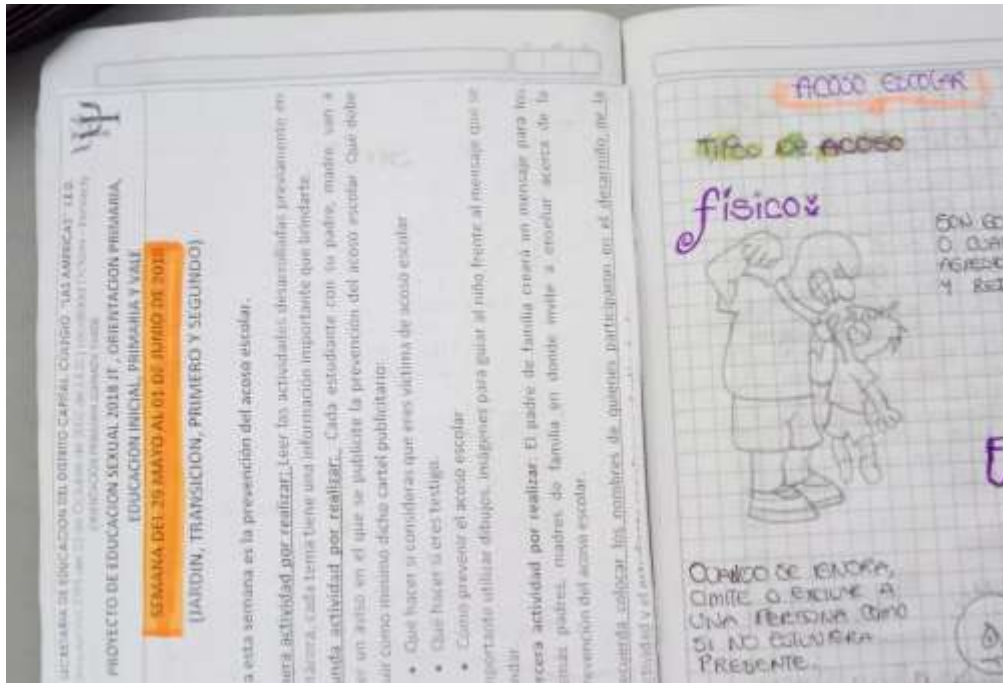 SECRETARIA DE EDUCACION DEL DISTRITO CAPITAL COLEGIO "LAS AMERICAS" I.E.D.
PROYECTO DE EDUCACION SEXUAL 2018 JT, ORIENTACION PRIMARIA,
EDUCACION INICIAL, PRIMARIA Y VALE
SEMANA DEL 29 MAYO AL 01 DE JUNIO DE 2018
(JARDIN, TRANSICION, PRIMERO Y SEGUNDO)
a esta semana es la prevención del acoso escolar.
era actividad por realizar: Leer las actividades desarrolladas previamente en
cada tema tiene una información importante que brindarte.
unda actividad por realizar: Cada estudiante con su padre, madre van a
er un aviso en el que se publicite la prevención del acoso escolar. Que debe
uir como mínimo dicho cartel publicitario:
• Que hacer si consideras que eres victima de acoso escolar
• Que hacer si eres testigo.
• Como prevenir el acoso escolar
portante utilizar dibujos, imágenes para guiar al niño frente al mensaje que se
rcera actividad por realizar: El padre de familia creará un mensaje para los
más padres, madres de familia en donde invite a enseñar acerca de la
revención del acoso escolar.
ecuerda colocar los nombres de quienes participaron en el desarrollo de la
ACOSO ESCOLAR
TIPOS DE ACOSO
físico
SON
O
Y
CUANDO SE IGNORA,
OMITE O EXCLUYE A
UNA PERSONA COMO
SI NO ESTUVIERA
PRESENTE.